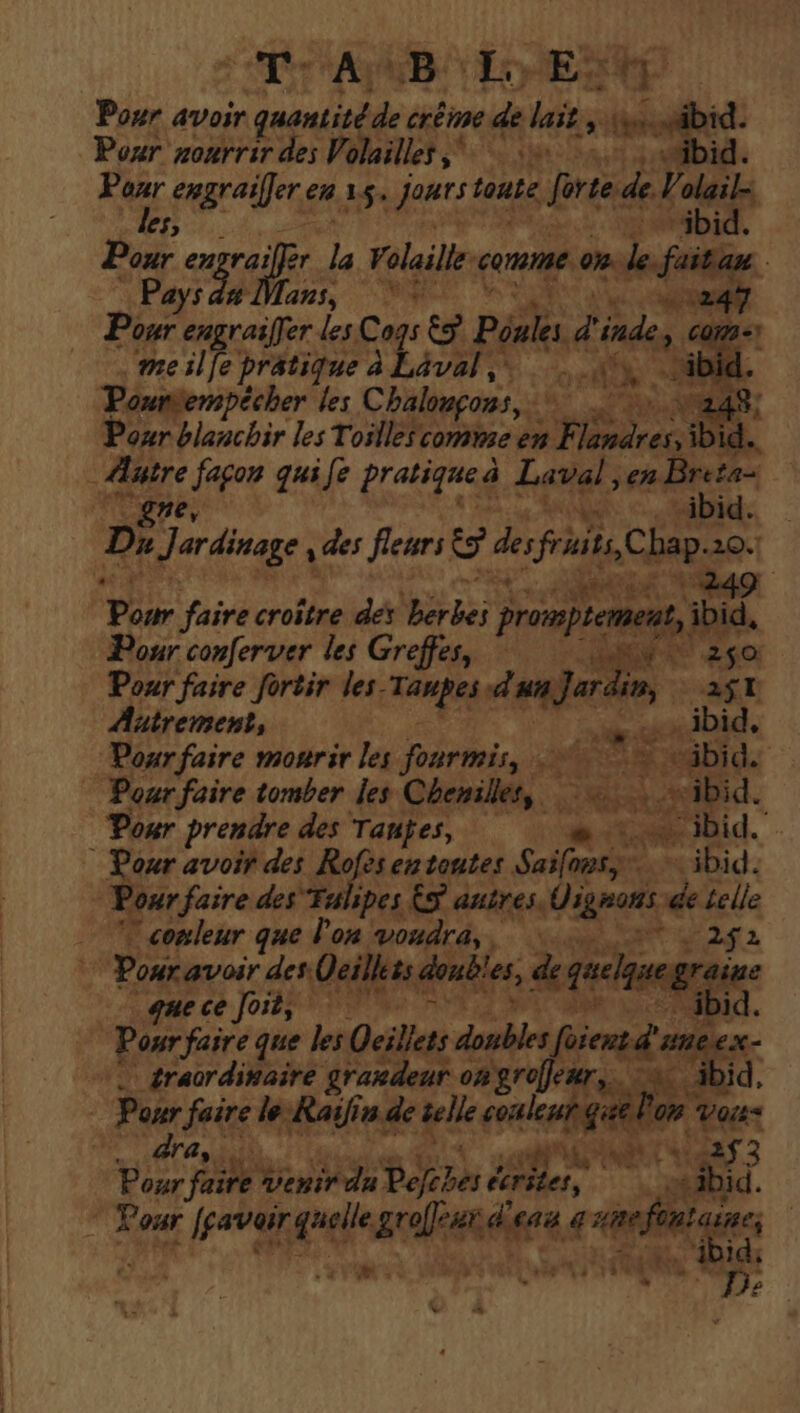 TABLE
Pour avoir quantité de crême de lait, ibid.
Pour nourrir des Volailles, ibid.
Pour engraiſſer en 15. jours toute ſorte de Volail-
les, ibid.
Pour engraiſſer la Volaille comme on le fait au
Pays du Mans, 247
Pour engraiſſer les Coqs & Poules d'inde, com-
me il ſe pratique à Laval, ibid.
Pour empécher les Chalouçons, 248
Pour blanchir les Toilles comme en Flandres, ibid.
Autre façon qui ſe pratique à Laval, en Breta-
gne, ibid.
Du Jardinage, des fleurs & des fruits, Chap. 20.
249
Pour faire croître des herbes promptement, ibid,
Pour conſerver les Greffes, 250
Pour faire ſortir les Taupes d'un Jardin, 251
Autrement, ibid.
Pour faire mourir les fourmis, ibid.
Pour faire tomber les Chenilles, ibid.
Pour prendre des Taupes, ibid.
Pour avoir des Roſes en toutes Saiſons, ibid.
Pour faire des Tulipes & autres Oignons de telle
couleur que l'on voudra, 252
Pour avoir des Oeillets doubles, de quelque graine
que ce ſoit, ibid.
Pour faire que les Oeillets doubles ſoient d'une ex-
traordinaire grandeur on groſſeur, ibid.
Pour faire le Raiſin de telle couleur que l'on vou-
dra, 253
Pour faire venir du Peſches écrites, ibid.
Pour ſçavoir quelle groſſeur d'eau a une fontaine,
ibid.
De